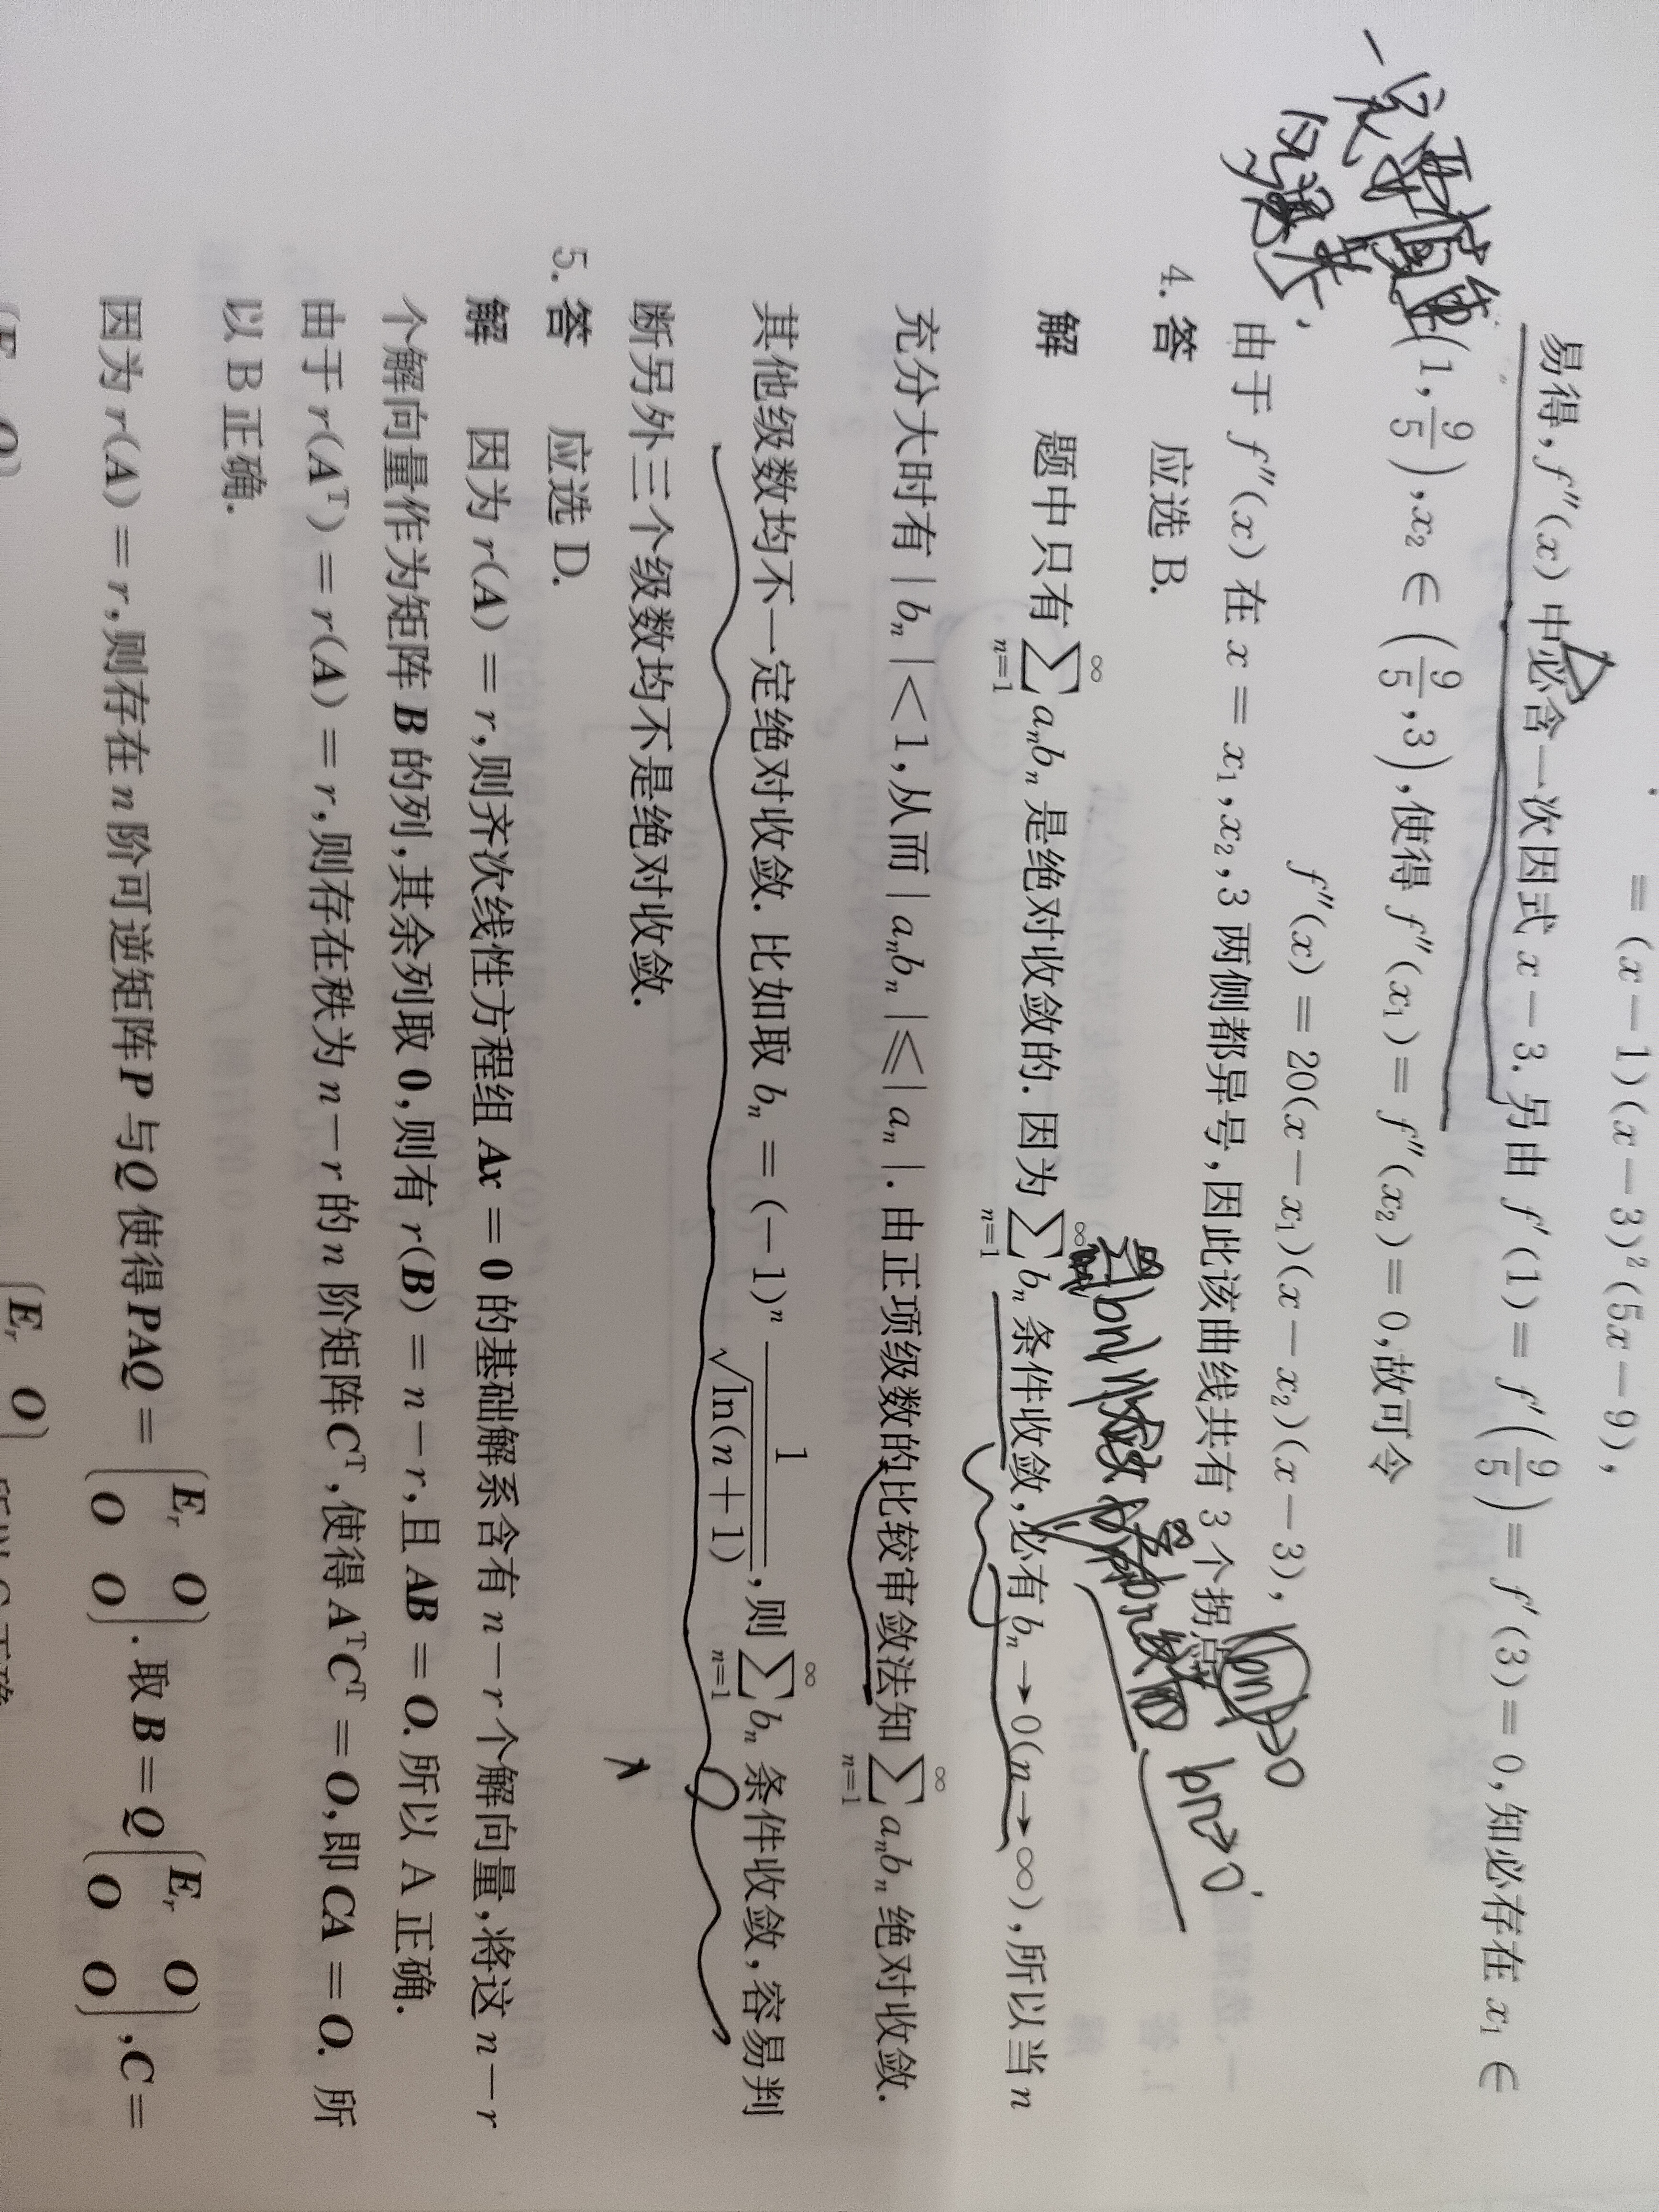 = (x − 1)(x − 3)²(5x − 9),
易得, f″(x) 中必含一次因式 x − 3. 另由 f′(1) = f′(9/5) = f′(3) = 0, 知必存在 x₁ ∈
(1, 9/5), x₂ ∈ (9/5, 3), 使得 f″(x₁) = f″(x₂) = 0, 故可令
f″(x) = 20(x − x₁)(x − x₂)(x − 3),
由于 f″(x) 在 x = x₁, x₂, 3 两侧都异号, 因此该曲线共有 3 个拐点.
|bn|→0
bn→0
4. 答 应选 B.
解 题中只有 ∑_{n=1}^{∞} aₙbₙ 是绝对收敛的. 因为 ∑_{n=1}^{∞} bₙ 条件收敛, 必有 bₙ → 0(n → ∞), 所以当 n
充分大时有 | bₙ | < 1, 从而 | aₙbₙ | ≤ | aₙ |. 由正项级数的比较审敛法知 ∑_{n=1}^{∞} aₙbₙ 绝对收敛.
其他级数均不一定绝对收敛. 比如取 bₙ = (−1)ⁿ 1/√(ln(n + 1)), 则 ∑_{n=1}^{∞} bₙ 条件收敛, 容易判
断另外三个级数均不是绝对收敛.
5. 答 应选 D.
解 因为 r(A) = r, 则齐次线性方程组 Ax = 0 的基础解系含有 n − r 个解向量, 将这 n − r
个解向量作为矩阵 B 的列, 其余列取 0, 则有 r(B) = n − r, 且 AB = O. 所以 A 正确.
由于 r(Aᵀ) = r(A) = r, 则存在秩为 n − r 的 n 阶矩阵 Cᵀ, 使得 AᵀCᵀ = O, 即 CA = O. 所
以 B 正确.
因为 r(A) = r, 则存在 n 阶可逆矩阵 P 与 Q 使得 PAQ = (Eᵣ O; O O). 取 B = Q(Eᵣ O; O O), C =